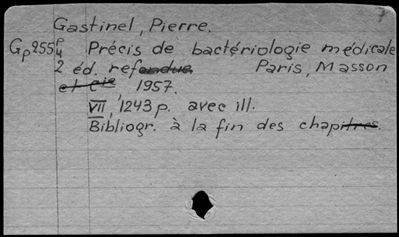 Gastinel, Pierre.
Gp255 P4 Précis de bactériologie médicale
2 éd. refondue. Paris, Masson
et Cie 1957.
VII, 1243 p. avec ill.
Bibliogr. à la fin des chapitres.